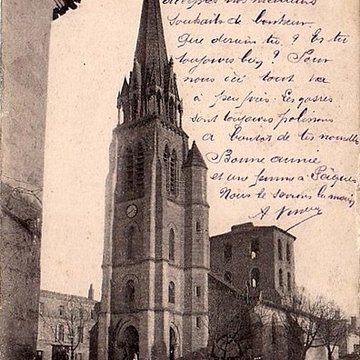 souhaits de bonheur.
Que deviens tu ? Es tu
toujours bien ? Pour
nous ici tout va
à peu près. Les gosses
sont toujours polissons
A bientôt de tes nouvelles
Bonne année
et une femme à Pâques
Nous te serrons la main
A